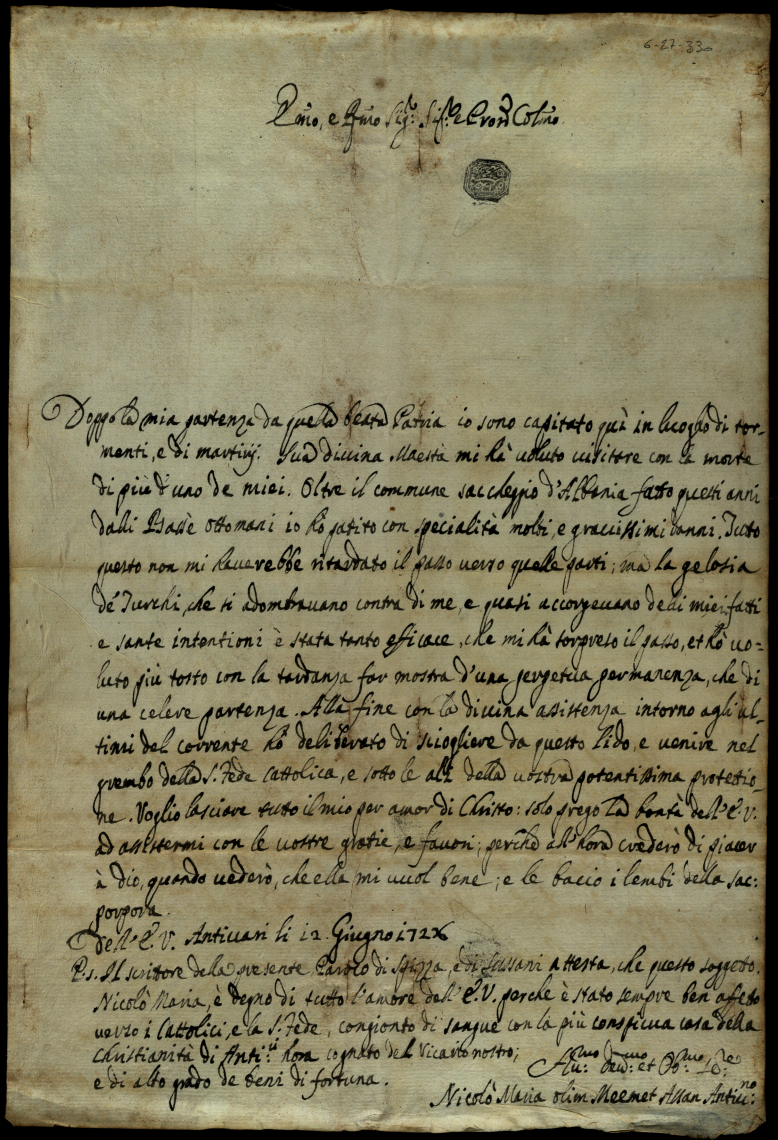 6-27-330
Emo, e Rmo Sigr: Sigr: e Pron Colmo
Doppo la mia partenza da quella beata Patria io sono capitato quì in luogho di tor-
menti, e di martirij. Sua divina Maestà mi hà voluto visitare con la morte
di più d'uno de miei. Oltre il commune saccheggio d'Albania fatto questi anni
dalli Bassè ottomani io hò patito con specialità molti, e gravissimi danni. Tutto
questo non mi haverebbe ritardato il passo verso quelle parti; ma la gelosia
de' Turchi, che si adombravano contra di me, e quasi accorgevano delli miei fatti
e sante intentioni è stata tanto eficace, che mi hà sorpreso il passo, et hò vo=
luto più tosto con la tardanza far mostra d'una perpetua permanenza, che di
una celere partenza. Alla fine con la divina assistenza intorno agli ul-
timi del corrente hò deliberato di sciogliere da questo lido, e venire nel
grembo della S. Fede Cattolica, e sotto le ali della vostra potentissima protettio-
ne. Voglio lasciare tutto il mio per amor di Christo: solo prego la bontà dell'E.V.
ad assistermi con le vostre gratie, e favori; perche all'hora crederò di piacer
à dio, quando vederò, che ella mi vuol bene; e le bacio i lembi della sac:
porpora.
Dell'E.V. Antivari li 12 Giugno 1726
P.s. Il scrittore della presente Paroco di Spizza, e di Sussani attesta, che questo soggetto
Nicolò Maria, è degno di tutto l'amore dell'E.V. perche è stato sempre ben affeto
verso i Cattolici, e la S. Fede, congionto di sangue con la più conspicua casa della
Christianità di Antiri hora cognato del Vicario nostro;
e di alto grado de beni di fortuna.
Hu:mo dev:mo et Ob:mo Sre
Nicolò Maria olim Meemet Assan Antivno: